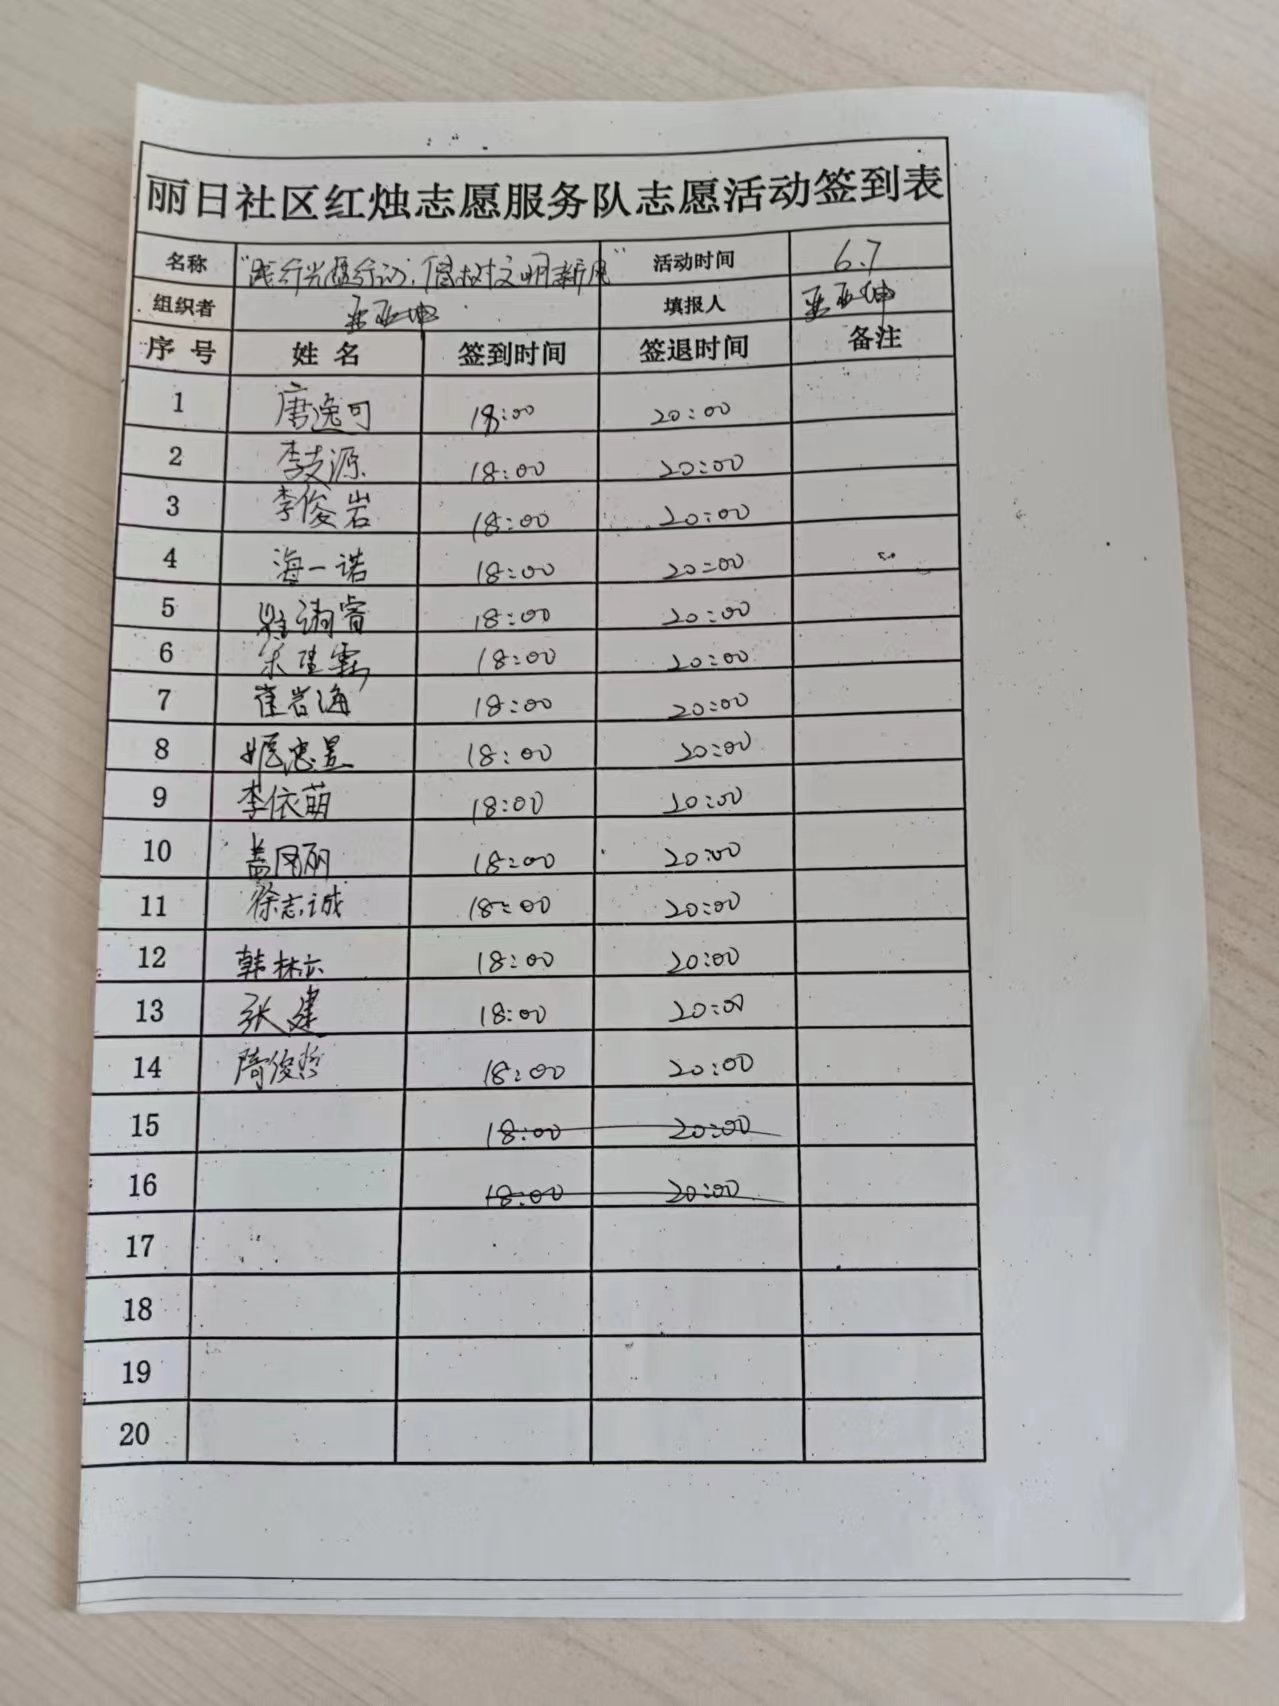 丽日社区红烛志愿服务队志愿活动签到表
名称 "践行光盘行动,倡树文明新风" 活动时间 6.7
组织者 填报人
序号 姓名 签到时间 签退时间 备注
1 唐逸可 18:00 20:00
2 李支源 18:00 20:00
3 李俊岩 18:00 20:00
4 海一诺 18:00 20:00
5 18:00 20:00
6 18:00 20:00
7 崔岩海 18:00 20:00
8 18:00 20:00
9 李依萌 18:00 20:00
10 盖风丽 18:00 20:00
11 徐志诚 18:00 20:00
12 韩林 18:00 20:00
13 张建 18:00 20:00
14 隋俊哲 18:00 20:00
15 18:00 20:00
16 18:00 20:00
17
18
19
20